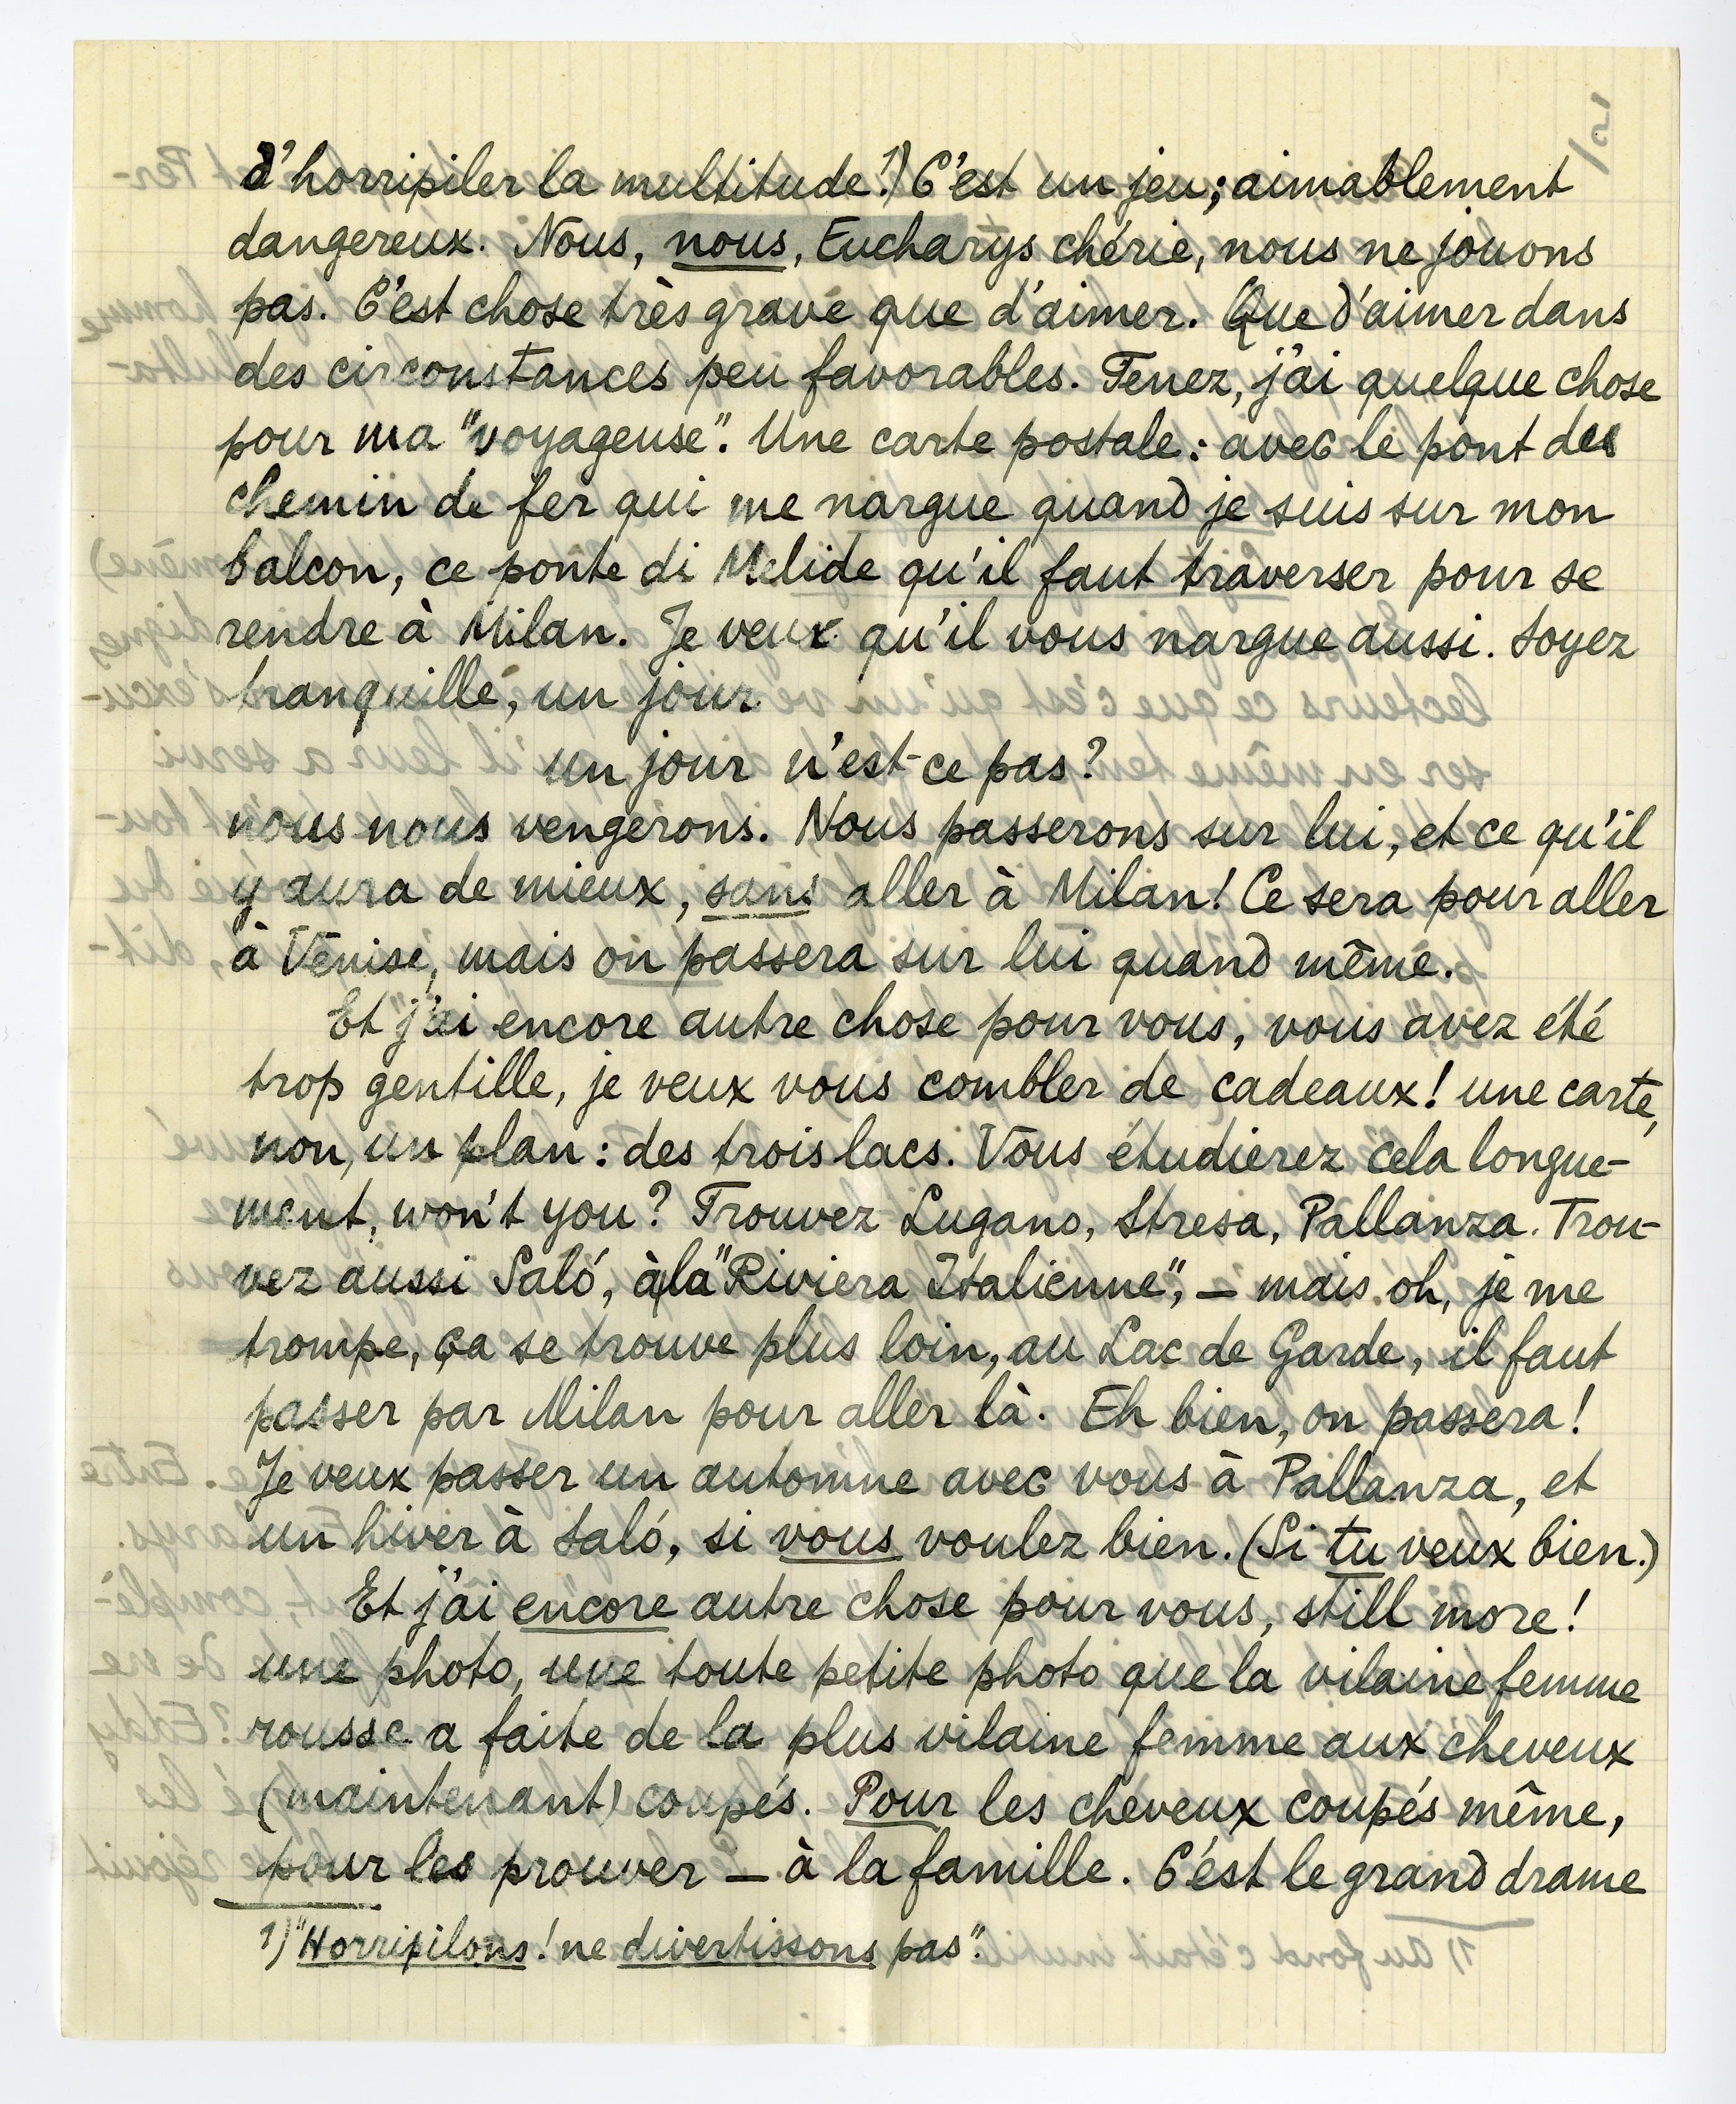 d'horripiler la multitude!¹) C'est un jeu; aimablement
dangereux. Nous, nous, Eucharys chérie, nous ne jouons
pas. C'est chose très grave que d'aimer. Que d'aimer dans
des circonstances peu favorables. Tenez, j'ai quelque chose
pour ma "voyageuse". Une carte postale: avec le pont des
chemin de fer qui me nargue quand je suis sur mon
balcon, ce ponte di Melide qu'il faut traverser pour se
rendre à Milan. Je veux qu'il vous nargue aussi. Soyez
tranquille, un jour
un jour n'est-ce pas?
nous nous vengerons. Nous passerons sur lui, et ce qu'il
y aura de mieux, sans aller à Milan! Ce sera pour aller
à Venise, mais on passera sur lui quand même.
Et j'ai encore autre chose pour vous, vous avez été
trop gentille, je veux vous combler de cadeaux! une carte,
non, un plan: des trois lacs. Vous étudierez cela longue-
ment, won't you? Trouvez Lugano, Stresa, Pallanza. Trou-
vez aussi Saló, à la "Riviera Italienne", – mais oh, je me
trompe, ça se trouve plus loin, au Lac de Garde, il faut
passer par Milan pour aller là. Eh bien, on passera!
Je veux passer un automne avec vous à Pallanza, et
un hiver à Saló, si vous voulez bien. (Si tu veux bien.)
Et j'ai encore autre chose pour vous, still more!
une photo, une toute petite photo que la vilaine femme
rousse a faite de la plus vilaine femme aux cheveux
(maintenant) coupés. Pour les cheveux coupés même,
pour les prouver – à la famille. C'est le grand drame
1) "Horripilons! ne divertissons pas".